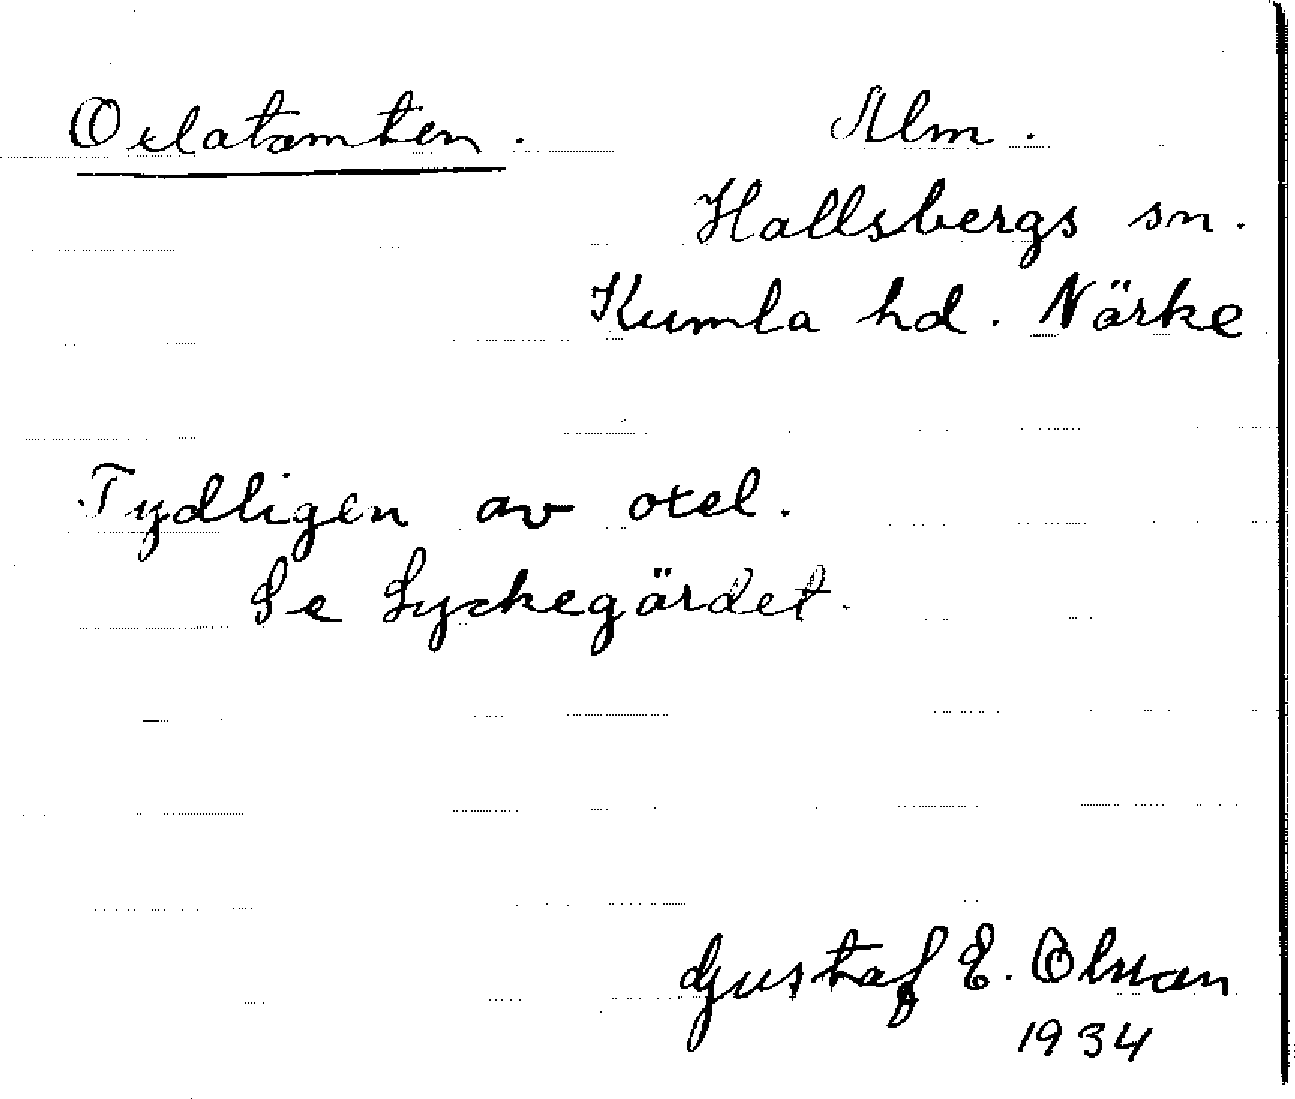 Oxlatomten. Alm.
Hallsbergs sn.
Kumla hd. Närke
Tydligen av oxel.
Se Lyckegärdet.
Gustaf E. Olsson
1934